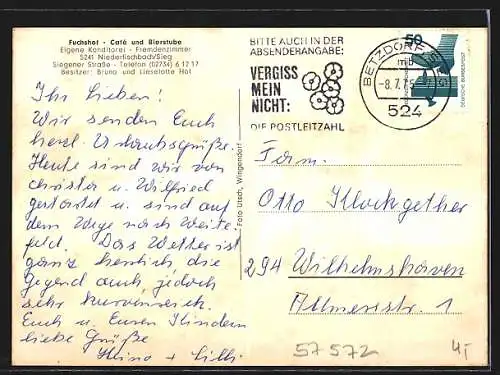 Fuchshof - Café und Bierstube
Eigene Konditorei - Fremdenzimmer
5241 Niederfischbach/Sieg
Siegener Straße - Telefon (02734) 6 12 17
Besitzer: Bruno und Lieselotte Hof
BITTE AUCH IN DER
ABSENDERANGABE:
VERGISS
MEIN
NICHT:
DIE POSTLEITZAHL
BETZDORF
mb
-8.7.75
524
50
DEUTSCHE BUNDESPOST
Ihr Lieben!
Wir senden Euch
herzl. Urlaubsgrüße.
Heute sind wir von
Christa u. Wilfried
gestartet u. sind auf
dem Wege nach Weite-
feld. Das Wetter ist
ganz herrlich die
Gegend auch, jedoch
sehr kurvenreich.
Euch u. Euren Kindern
liebe Grüße
Heino + Lilli
Foto Utsch, Wingendorf
Fam.
Otto Klockgether
294 Wilhelmshaven
Allmersstr. 1
57572
4,-